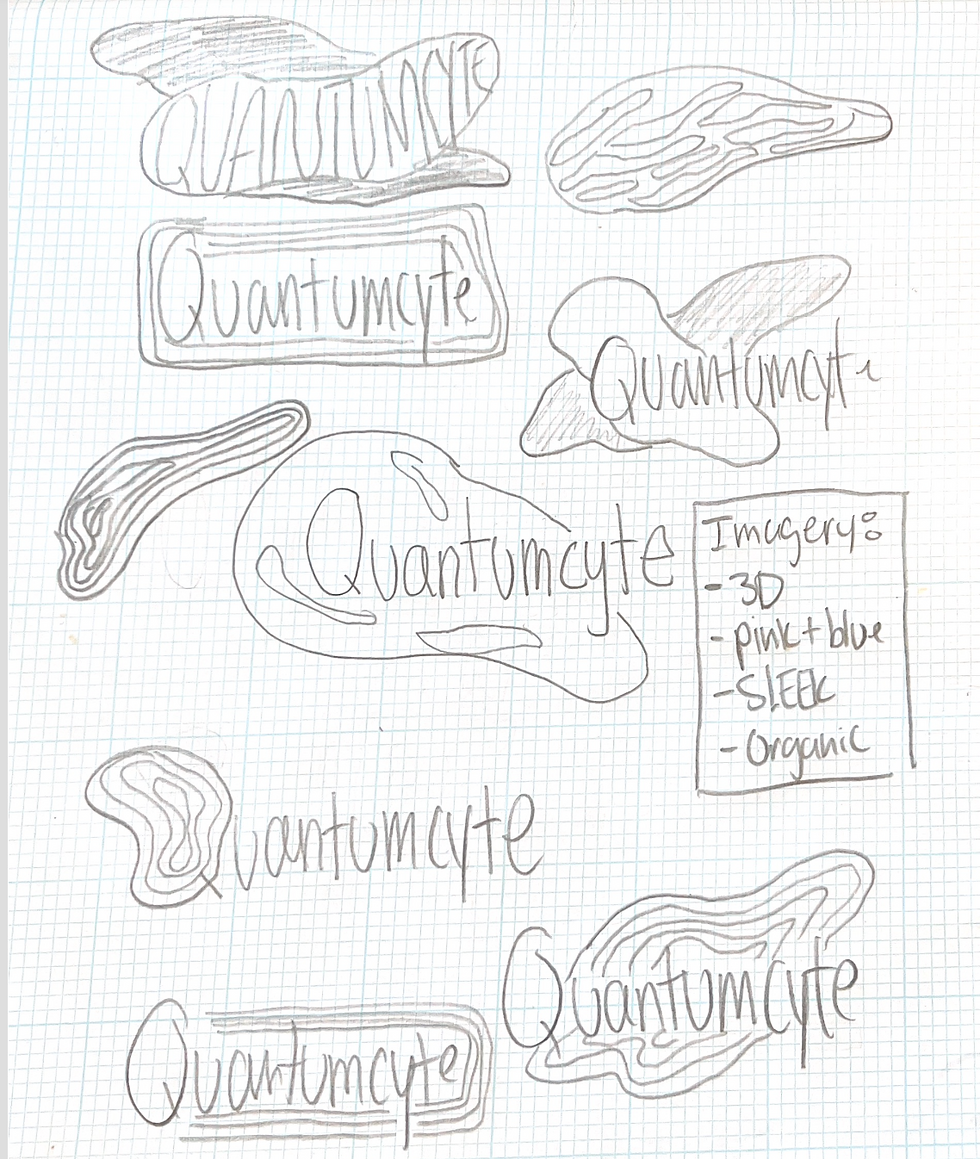 QUANTUMCYTE
Quantumcyte
Quantumcyte
Quantumcyte
Imagery:
-3D
-pink+blue
-SLEEK
-Organic
Quantumcyte
Quantumcyte
Quantumcyte